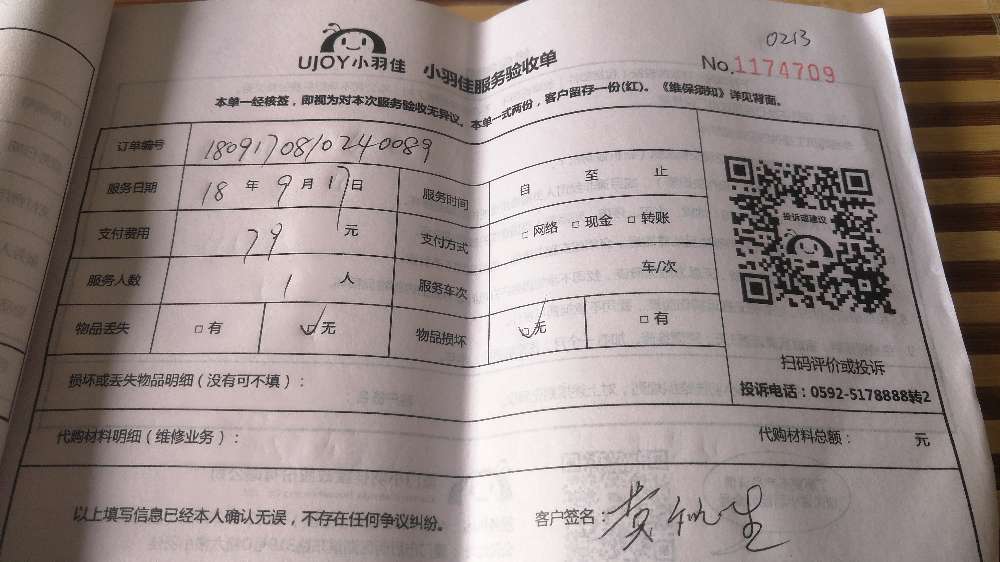 0213
UJOY小羽佳 小羽佳服务验收单 No.1174709
本单一经核签，即视为对本次服务验收无异议。本单一式两份，客户留存一份(红)。《维保须知》详见背面。
订单编号 1809170810240089
服务日期 18 年 9 月 17 日 服务时间 自 至 止
支付费用 79 元 支付方式 □网络 □现金 □转账
服务人数 1 人 服务车次 车/次
物品丢失 □有 ☑无 物品损坏 ☑无 □有
投诉或建议
扫码评价或投诉
投诉电话：0592-5178888转2
损坏或丢失物品明细（没有可不填）：
代购材料明细（维修业务）： 代购材料总额： 元
以上填写信息已经本人确认无误，不存在任何争议纠纷。 客户签名：黄 生